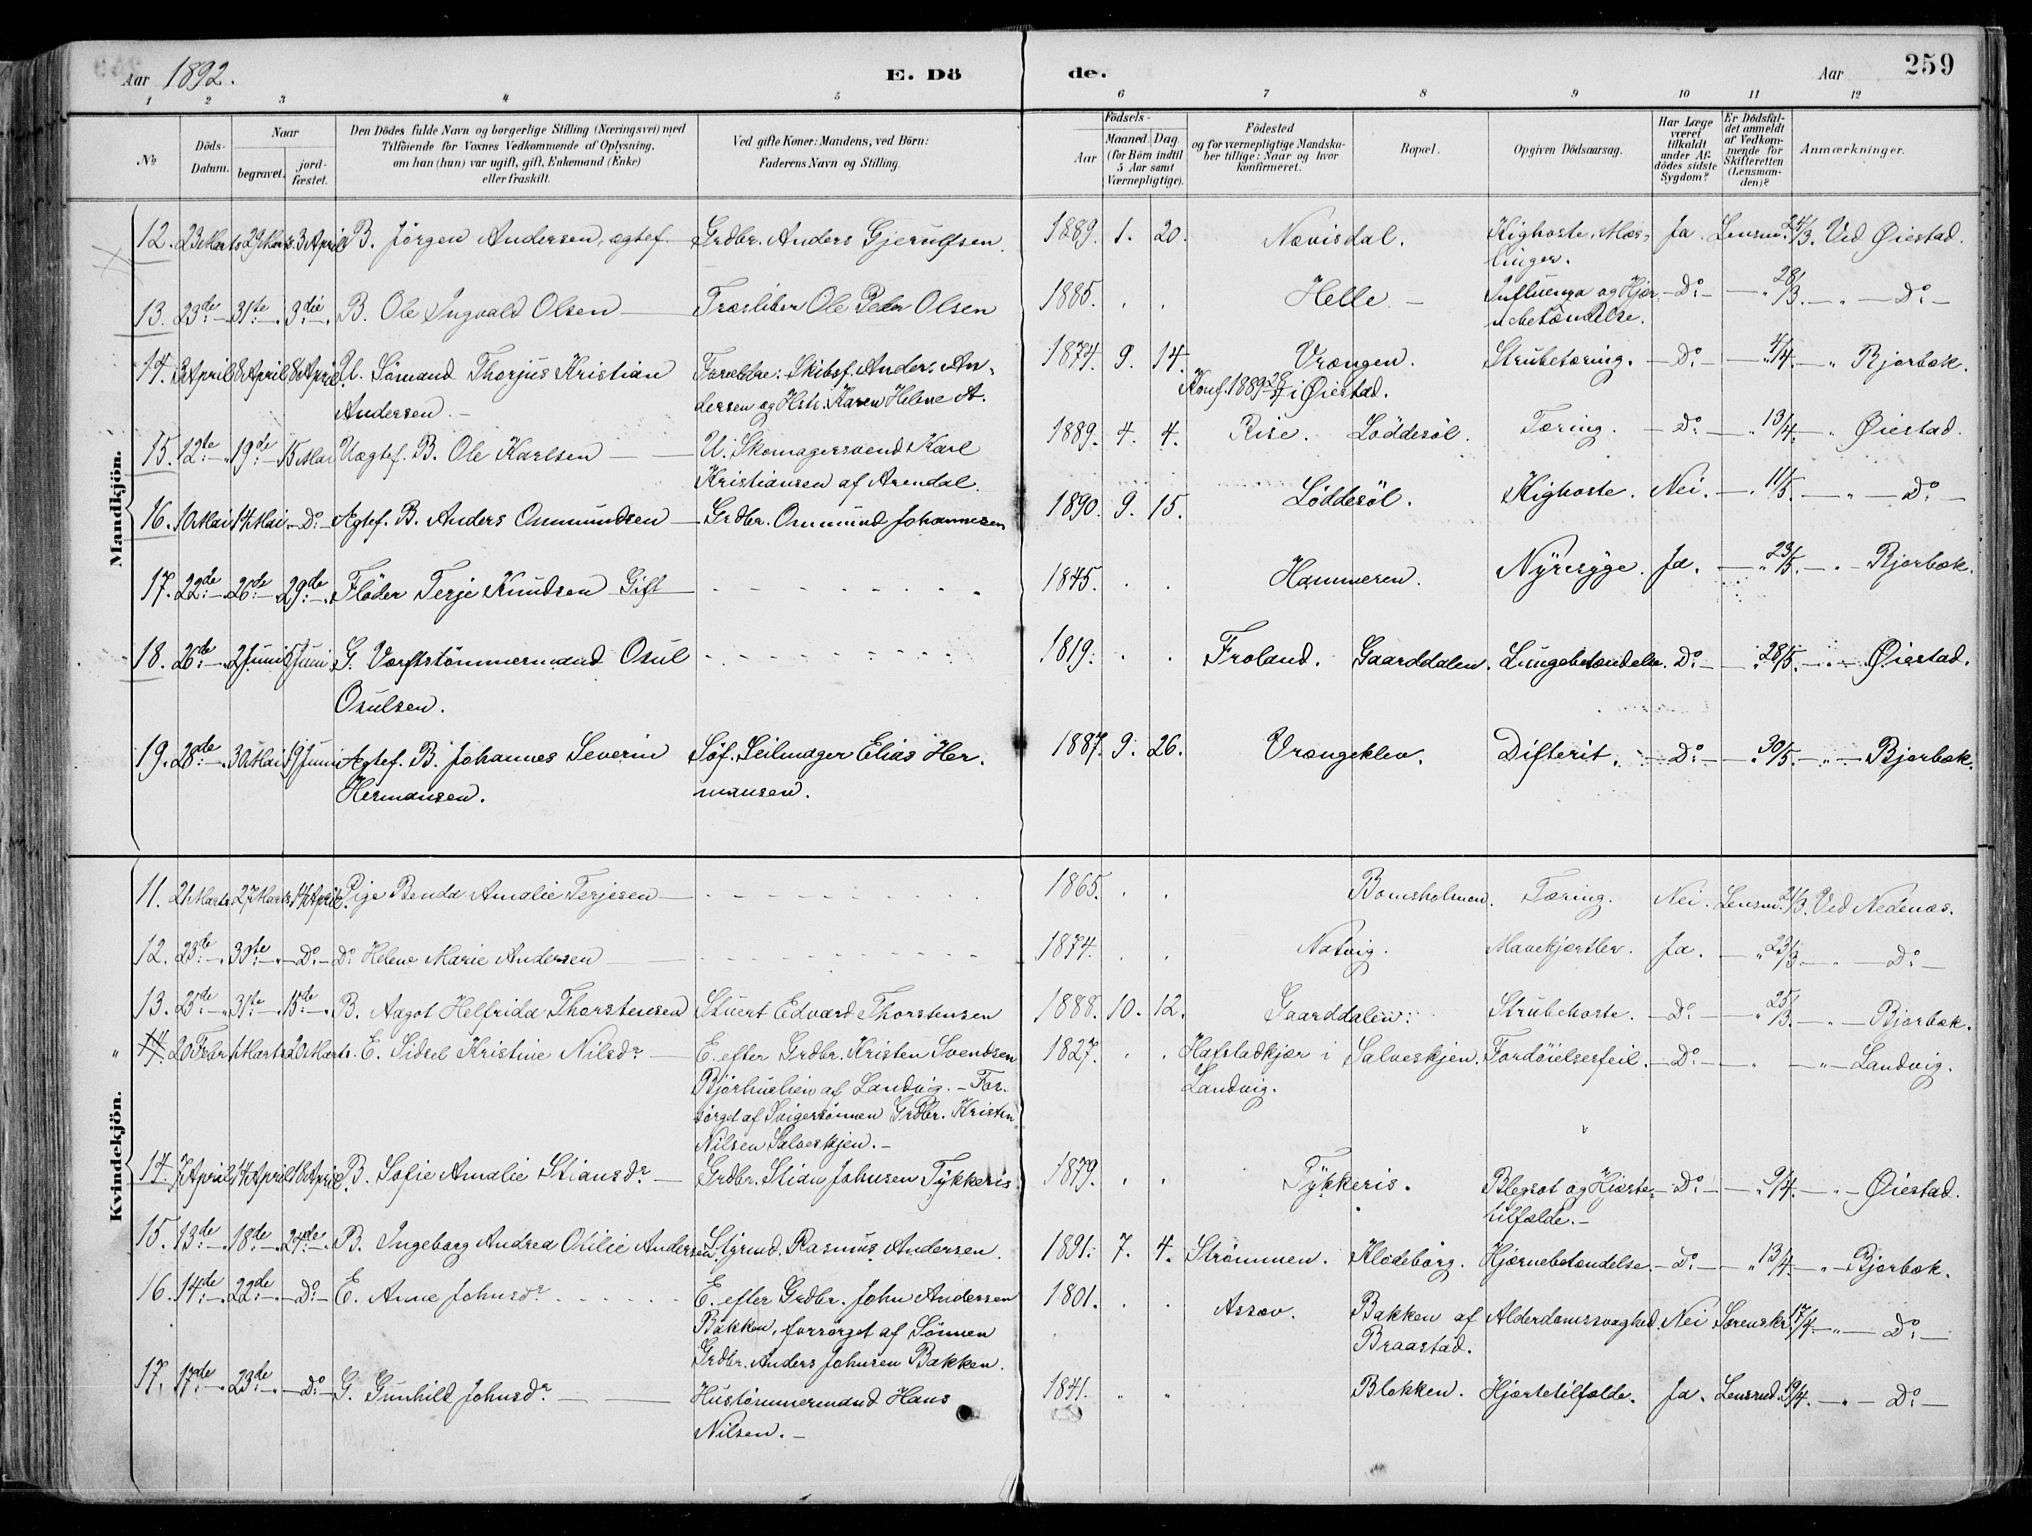 Aar 1892. E. Dö de. Aar 259
1 2 3 4 5 6 7 8 9 10 11 12
No
Döds-Datum.
Naar
begravet.
jord-fæstet.
Den Dödes fulde Navn og borgerlige Stilling (Næringsvei) med
Tilföiende for Voxnes Vedkommende af Oplysning,
om han (hun) var ugift, gift, Enkemand (Enke)
eller fraskilt.
Ved gifte Koner: Mandens, ved Börn:
Faderens Navn og Stilling.
Födsels-
Aar
Maaned. Dag.
(for Börn indtil
5 Aar samt
Værnepligtige).
Födested
og for værnepligtige Mandska-
ber tillige: Naar og hvor
konfirmeret.
Bopæl.
Opgiven Dödsaarsag.
Har Læge
været
tilkaldt
under Af-
dödes sidste
Sygdom?
Er Dödsfal-
det anmeldt
af Vedkom-
mende for
Skifteretten
(Lensman-
den)?
Anmærkninger.
Mandkjön.
12. 23 Marts 29 Marts. 3 April B. Jörgen Andersen, ægtef. — Grdbr. Anders Gjerulfsen. 1889. 1. 20. Nævisdal. Kighoste. Mæs- Ja. Lensm. 24/3. Ved Øiestad.
linger.
13. 23de — 31te — 3die „ B. Ole Ingvald Olsen — Træsliber Ole Peder Olsen 1885. . . Helle — Influenza og Hjær- — Do — — „ 28/3 — „ — Do —
nebetændelse.
14. 3 April 8 April 18 April U. Sömand Thorjus Kristian Forældre: Skibsf. Anders An- 1874. 9. 14. Vrængen. Strubetæring. — Do — — 4/4. — „ Bjorbæk.
Andersen. — dersen og Hstr. Karen Helene A. Konf. 1889 i Øiestad.
15. 12te — 19de — 15 Mai Uægtef. B. Ole Karlsen — U. Skomagersvend Karl 1889. 4. 4. Rise. Løddesøl. Tæring. — Do — „ 13/4. — „ Øiestad.
Kristiansen af Arendal.
16. 10 Mai 14 Mai — Do — Ægtef. B. Anders Ommundsen — Grdbr. Ommund Johannesen 1890. 9. 15. Løddesøl. Kighoste. Nei. — „ 11/5. „ — Do —
17. 22de — 26de — 29de Fløder Terje Knudsen Gift — 1845. . . Hammeren. Nyresyge. Ja. — „ 23/5. — „ — Bjorbæk.
18. 26de — 2 Juni 5 Juni G. Værftstömmermand Osul 1819. . . Froland. Gaarddalen. Lungebetændelse. Do — „ 28/5 — „ — Øiestad.
Osulsen.
19. 28de — 30 Mai 19 Juni Ægtef. B. Johannes Severin Söf. Seilmager Elias Her- 1887. 9. 26. Vrængeklev. Difterit. — Do — „ 30/5. — „ — Bjorbæk.
Hermansen. mansen.
Kvindekjön.
11. 21 Marts 27 Marts 14 April. Pige Benda Amalie Terjesen — 1865. . . Bomsholmen. Tæring. Nei. Lensm. 21/3. Ved Nedenæs.
12. 23de — 30te — — Do — Do Helene Marie Andersen — 1874. . . Natvig. Mavekjertler. Ja. — „ 23/3. — „ — Do —
13. 25de — 31te — 15de — B. Aagot Helfrida Thorstensen Stuert Edvard Thorstensen 1888. 10. 12. Gaarddalen. Strubehoste. — Do — — 25/3 — „ — Bjorbæk.
„ 14. 20 Febr. 1 Marts 20 Marts. E. Sidsel Kristine Nilsdr — E. efter Grdbr. Kristen Svendsen 1827. . . Hafstadkjær i Salveskjen. Fordöielsesfeil. — Do — „ — „ — Landvig.
Bjorhuslien af Landvig. — For- Landvig.
sörget af Svigersönnen Grdbr. Kristen
Nilsen Salveskjen. —
14. 7 April 14 April 18 April. B. Sofie Amalie Stiansdr Grdbr. Stian Johnsen Tykkeris. 1879. . . Tykkeris. Blegsot og Hjærte- — Do — „ 9/4. — „ — Øiestad.
tilfælde. —
15. 13de — 18de — 24de — B. Ingeborg Andrea Otilie Andersen Styrmd. Rasmus Andersen. 1891. 7. 4. Strømmen. Klodeborg. Hjærnebetændelse. — Do — „ 13/4. — „ — Bjorbæk.
16. 14de — 22de — — Do — E. Anne Johnsdr E. efter Grdbr. John Andersen 1801. . . Assæv. Bakken af Alderdomssvaghed. Nei Sørenskr. 17/4. — „ — Do —
Bakken, forsørget af Sönnen Braastad.
Grdbr. Anders Johnsen Bakken.
17. 17de — 23de — — Do — G. Gunhild Johnsdr — Hustömmermand Hans 1841. „ „ Blokken. Hjærtetilfælde. Ja. Lensmd. 19/4. — „ — Do —
Nilsen. —